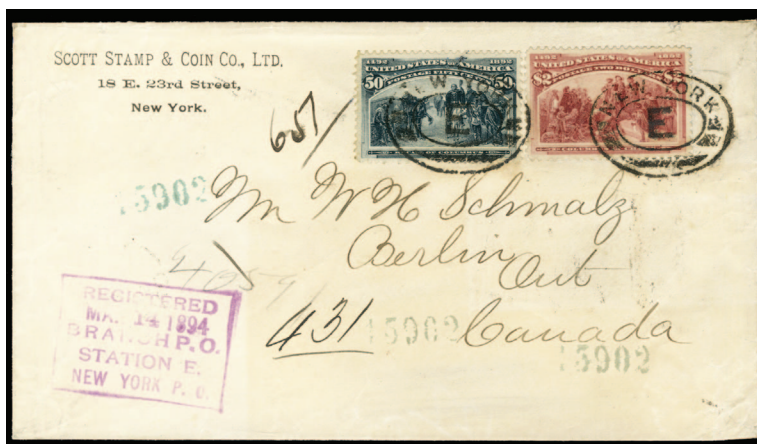 SCOTT STAMP & COIN CO., LTD.
18 E. 23rd Street,
New York.
1492 1892
UNITED STATES OF AMERICA
50 50
1492 1892
UNITED STATES OF AMERICA
$2
NEW YORK
E
NEW YORK
E
15902
Mr W H Schmalz
Berlin
Ont
Canada
431
15902
15902
REGISTERED
MAR 14 1894
BRANCH P.O.
STATION E.
NEW YORK P. O.